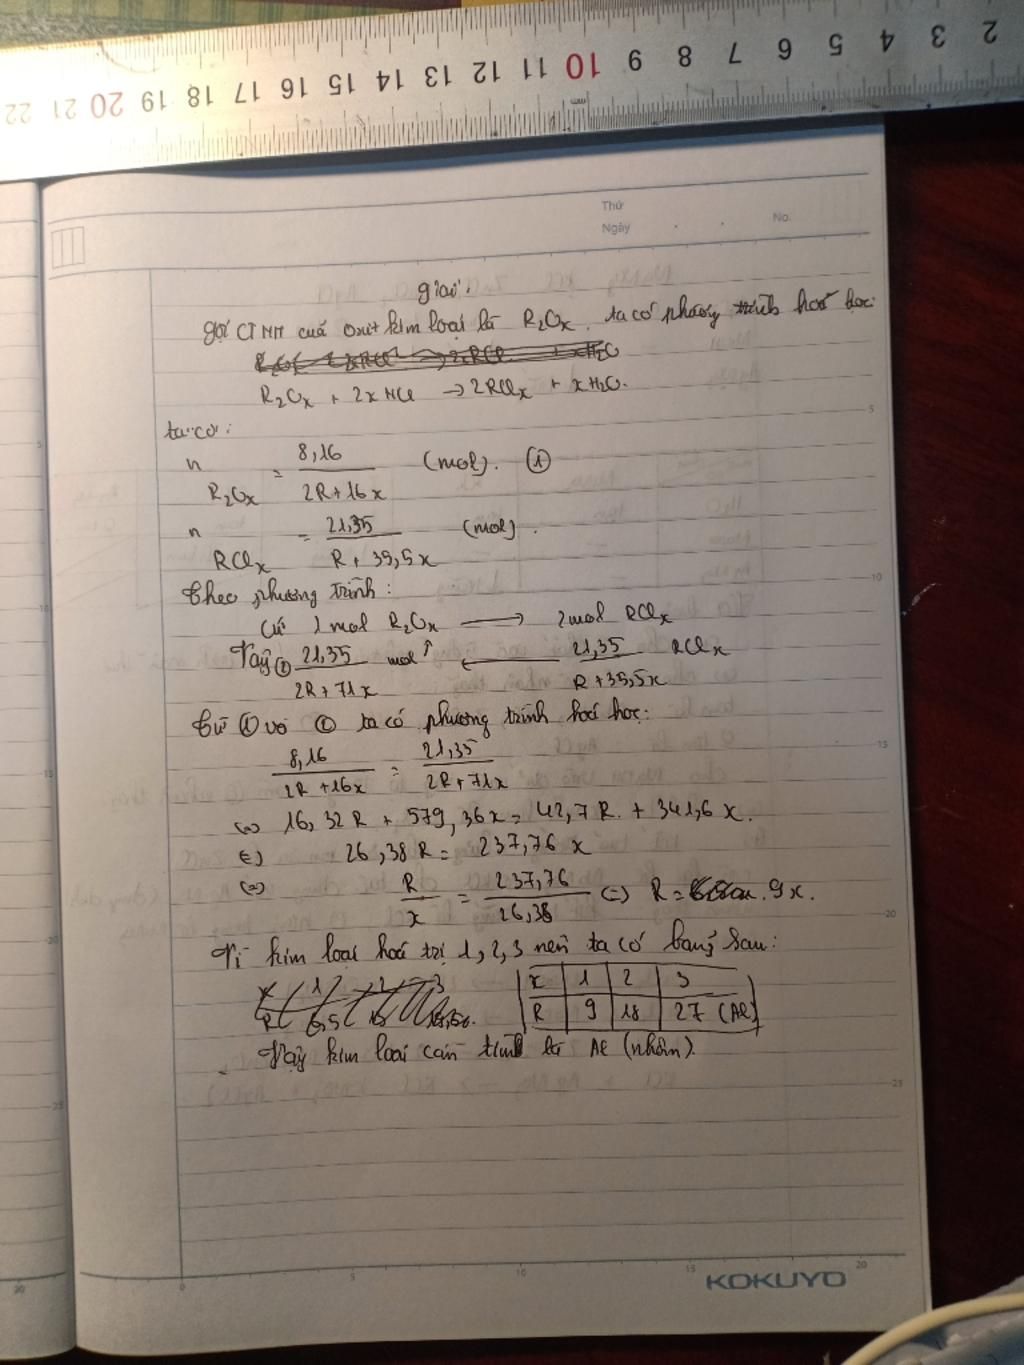 22 21 20 19 18 17 16 15 14 13 12 11 10 9 8 7 6 5 4 3 2
Thứ
Ngày
No.
giải:
gọi CTHH của oxit kim loại là R₂Oₓ, ta có phương trình hoá học:
R₂Oₓ + 2xHCl → 2RClₓ + xH₂O.
ta có:
n R₂Oₓ = 8,16 / (2R+16x) (mol). ①
n RClₓ = 21,35 / (R+35,5x) (mol).
Theo phương trình:
Cứ 1 mol R₂Oₓ → 2mol RClₓ
Vậy ② 21,35 / (2R+71x) mol ← 21,35 / (R+35,5x) RClₓ
Từ ① và ② ta có phương trình hoá học:
8,16 / (2R+16x) = 21,35 / (2R+71x)
⇔ 16,32R + 579,36x = 42,7R + 341,6x.
⇔ 26,38R = 237,76x
⇔ R/x = 237,76 / 26,38 ⇔ R = 9x.
Vì kim loại hoá trị 1,2,3 nên ta có bảng sau:
x 1 2 3
R 9 18 27 (Al)
Vậy kim loại cần tìm là Al (nhôm).
5
10
15
20
25
0 5 10 15 20
KOKUYO